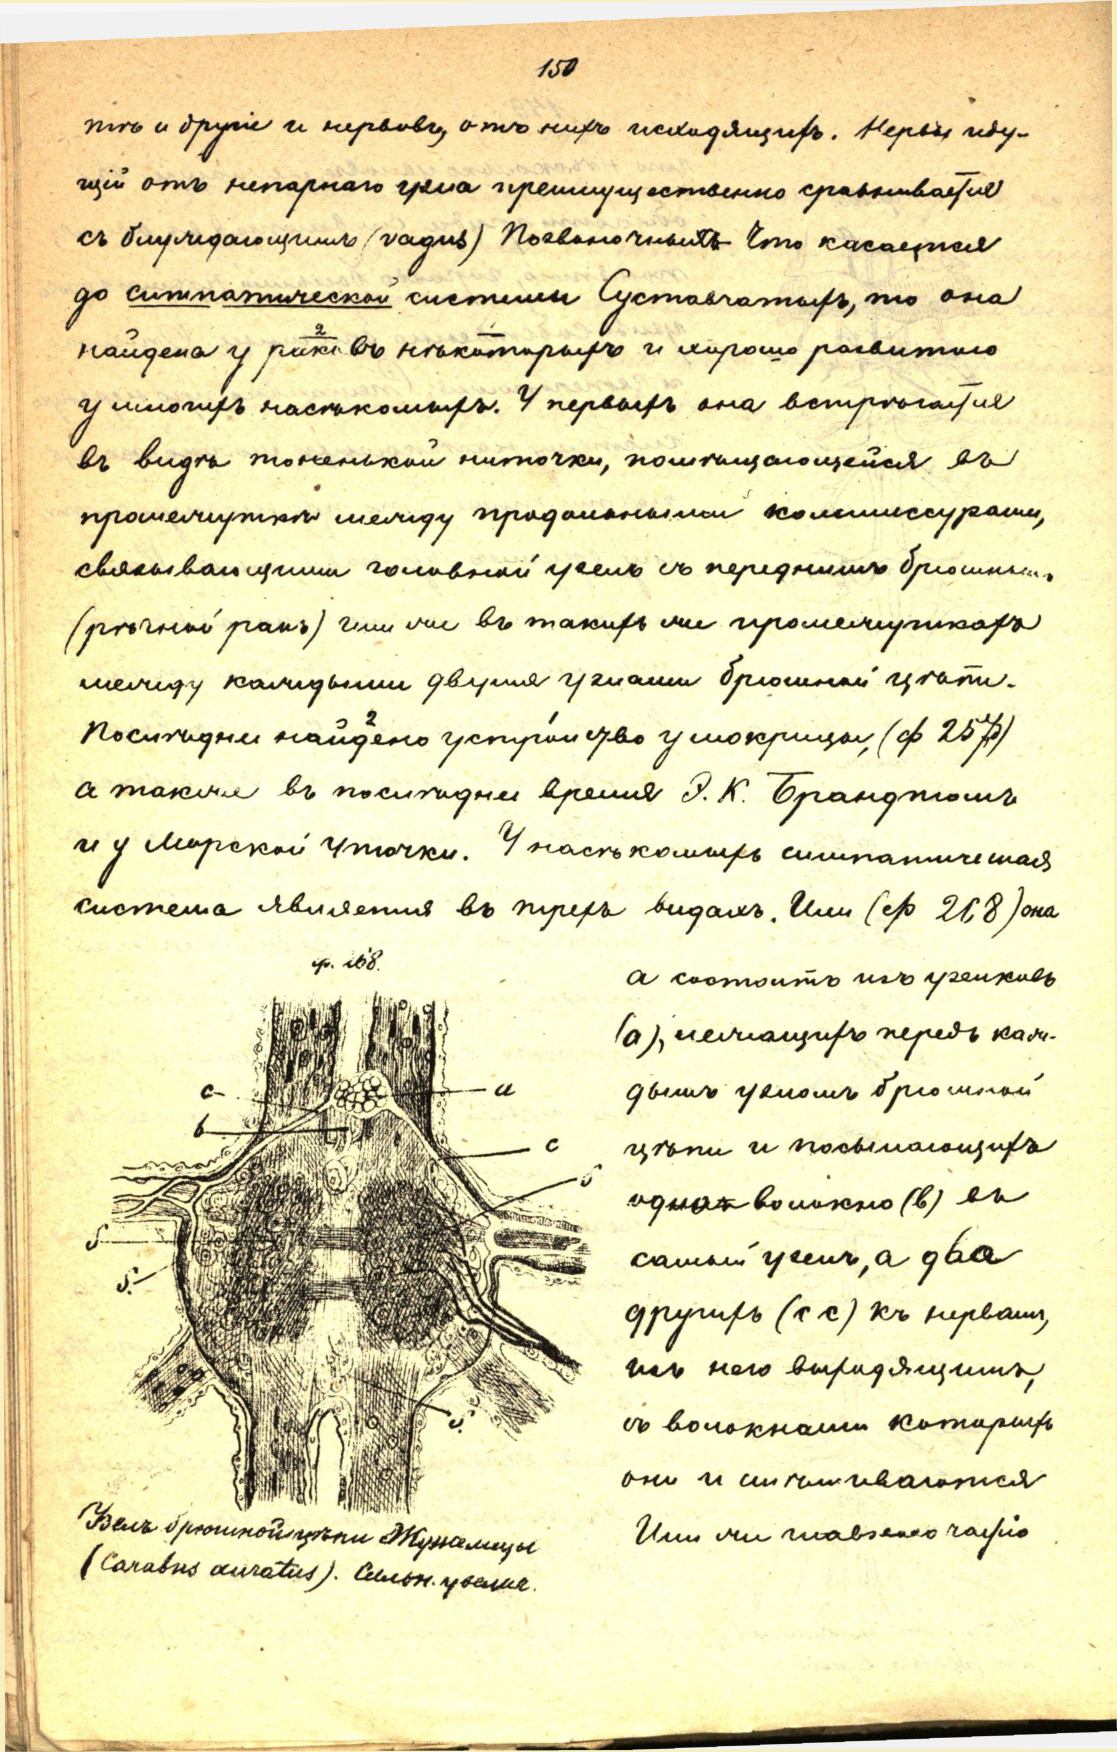 150
тѣ и другіе и нервовъ, отъ нихъ исходящихъ. Нервы иду-
щій отъ непарнаго узла преимущественно сравнивается
съ блуждающимъ (vagus) Позвоночныхъ Что касается
до симпатической системы Суставчатыхъ, то она
найдена у въ нѣкоторыхъ и хорошо развитою
у многихъ насѣкомыхъ. У первыхъ она встрѣчается
въ видѣ тоненькой ниточки, помѣщающейся въ
промежуткѣ между продольными коммиссурами,
связывающими головной узелъ съ переднимъ брюшнымъ
(рѣчной ракъ) или же въ такихъ же промежуткахъ
между каждыми двумя узлами брюшной цѣпи.
Послѣднее найдено устройство у мокрицы, (ф 257)
а также въ послѣднее время Э. К. Брандтомъ
и у Морской Уточки. У насѣкомыхъ симпатическая
система является въ трехъ видахъ. Или (ф 268) она
ф. 268.
а состоитъ изъ узелковъ
(а), лежащихъ передъ каж-
дымъ узломъ брюшной
цѣпи и посылающихъ
одно волокно (b) въ
самый узелъ, а два
другихъ (c c) къ нервамъ,
изъ него выходящимъ,
съ волокнами которыхъ
они и смѣшиваются
Или же главною частію
c
a
b
c
s
s
s'
s'
Узелъ брюшной цѣпи Жужелицы
(Carabus auratus). Сильн. увелич.